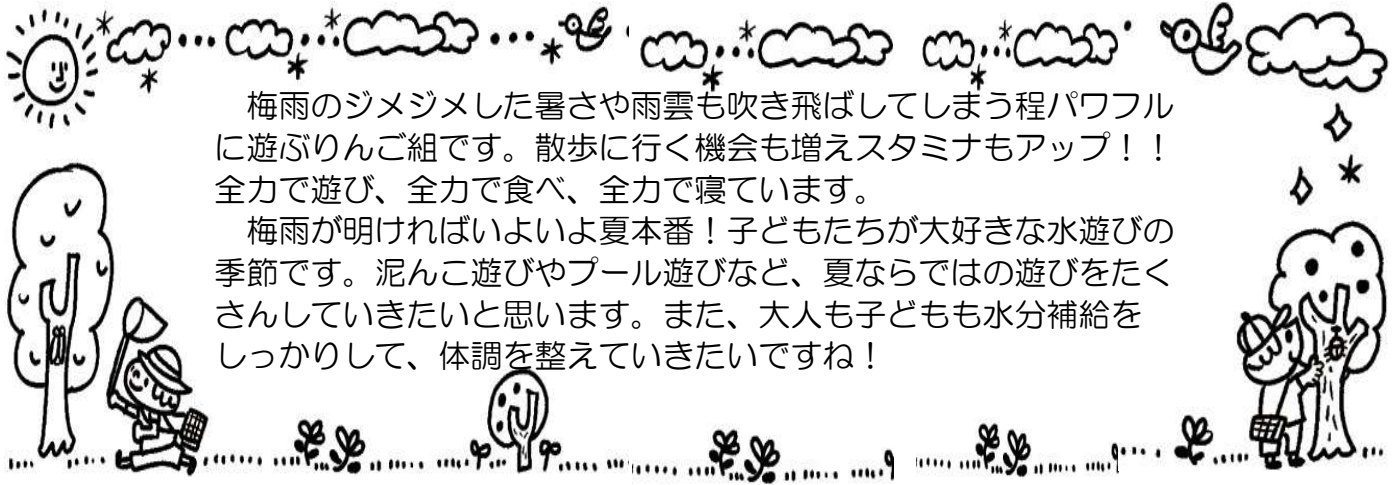 梅雨のジメジメした暑さや雨雲も吹き飛ばしてしまう程パワフル
に遊ぶりんご組です。散歩に行く機会も増えスタミナもアップ！！
全力で遊び、全力で食べ、全力で寝ています。
　梅雨が明ければいよいよ夏本番！子どもたちが大好きな水遊びの
季節です。泥んこ遊びやプール遊びなど、夏ならではの遊びをたく
さんしていきたいと思います。また、大人も子どもも水分補給を
しっかりして、体調を整えていきたいですね！